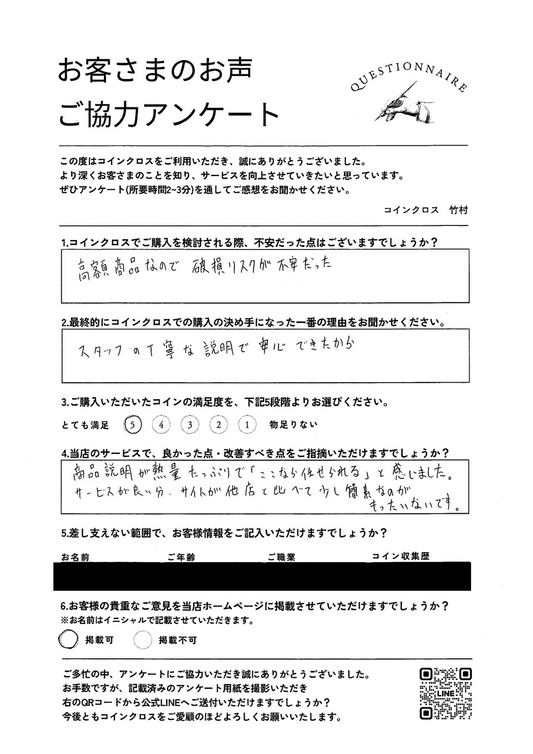 お客さまのお声
ご協力アンケート
QUESTIONNAIRE
この度はコインクロスをご利用いただき、誠にありがとうございました。
より深くお客さまのことを知り、サービスを向上させていきたいと思っています。
ぜひアンケート(所要時間2~3分)を通してご感想をお聞かせください。
コインクロス 竹村
1.コインクロスでご購入を検討される際、不安だった点はございますでしょうか？
高額商品なので 破損リスクが不安だった
2.最終的にコインクロスでの購入の決め手になった一番の理由をお聞かせください。
スタッフの丁寧な説明で安心できたから
3.ご購入いただいたコインの満足度を、下記5段階よりお選びください。
とても満足 5 4 3 2 1 物足りない
4.当店のサービスで、良かった点・改善すべき点をご指摘いただけますでしょうか？
商品説明が熱量たっぷりで「ここなら任せられる」と感じました。
サービスが良い分、サイトが他店と比べて少し簡素なのが
もったいないです。
5.差し支えない範囲で、お客様情報をご記入いただけますでしょうか？
お名前 ご年齢 ご職業 コイン収集歴
6.お客様の貴重なご意見を当店ホームページに掲載させていただけますでしょうか？
※お名前はイニシャルで記載させていただきます。
掲載可 掲載不可
ご多忙の中、アンケートにご協力いただき誠にありがとうございました。
お手数ですが、記載済みのアンケート用紙を撮影いただき
右のQRコードから公式LINEへご送付いただけますでしょうか？
今後ともコインクロスをご愛顧のほどよろしくお願いいたします。
LINE